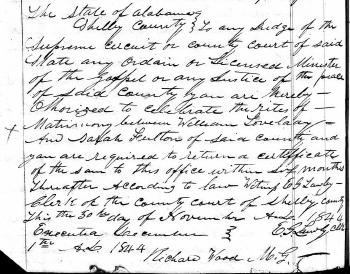 The State of Alabama
Shelby County } To any Judge of the
Supreme circuit or county court of said
State any Ordain or Licensed Minister
of the Gospel or any Justice of the peace
of said County you are Hereby
Thorized to celebrate the rites of
Matrimony between William Lovelady
And Sarah Fulton of said county and
you are required to return a certificate
of the sam to this office within six months
thereafter According to law Witness
Clerk of the county court of Shelby county
This the 30th day of November A.D. 1844
Executed December
1st A.D. 1844
Richard Wood M.G.